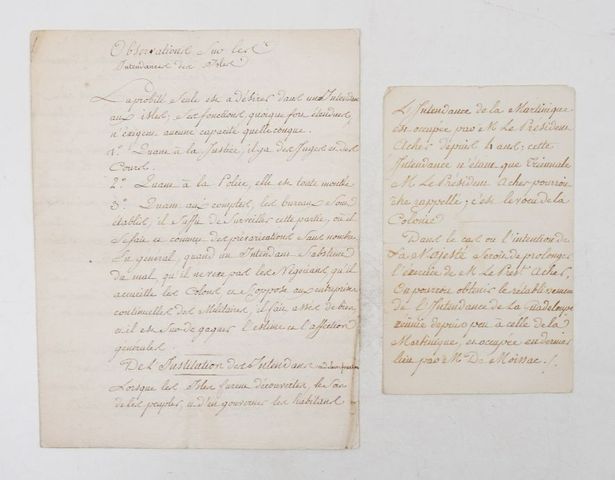 Observations Sur les
Intendances des Isles
La probité Seule est à désirer dans un Intendant
aux isles; Ses fonctions, quoique fort étendues,
n'exigent aucune capacité quelleconque.
1.° Quant à la Justice, il y a des Juges et des
Cours.
2.° Quant à la Police, elle est toute montée
3.° Quant aux comptes, les bureaux Sont
établis; il Suffit de Surveiller cette partie, où il
Se fait et commet des prévarications Sans nombre.
En general, quand un Intendant S'abstient
du mal, qu'il ne vexe pas les Négocians, qu'il
accueille les Colons et S'oppose aux entreprises
continuelles des Militaires, il fait assés de bien
et il est Sur de gagner l'estime et l'affection
generales.
De l'Institution des Intendans
Lorsque les Isles furent découvertes, le Soin
de les peupler, et d'en gouverner les habitans
L'Intendance de la Martinique
est occupée par M. Le Président
Acher depuis 4 ans: cette
Intendance n'étant que Triennale
M. Le Président Acher pourroit
être rappellé; c'est le voeu de la
Colonie
Dans le cas ou l'intention de
Sa Majesté Seroit de prolonger
l'exercice de M. Le Presid.t Acher,
On pourroit obtenir le rétablissement
de l'Intendance de La Guadeloupe
réunie depuis peu à celle de la
Martinique, et occupée en dernier
lieu par M. De Moissac./.